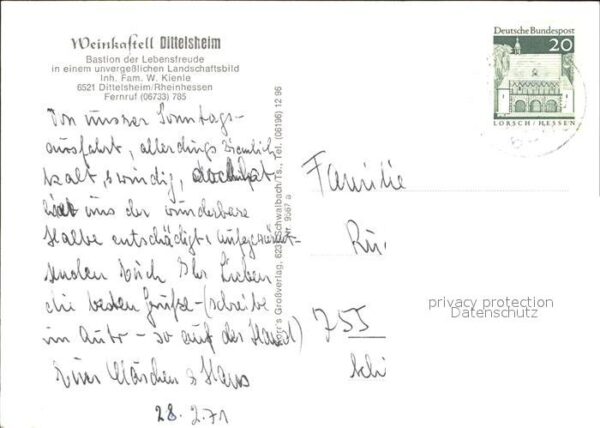 Weinkastell Dittelsheim
Bastion der Lebensfreude
in einem unvergeßlichen Landschaftsbild
Inh. Fam. W. Kienle
6521 Dittelsheim/Rheinhessen
Fernruf (06733) 785
Deutsche Bundespost
20
LORSCH/HESSEN
Von unserer Sonntags-
ausfahrt, allerdings ziemlich
kalt, windig,
uns der wunderbare
entschädigt,
Euch Ihr Lieben
die besten Grüße - (schreibe
im Auto - so auf der Hand)
& Hans
28.2.71
Familie
755
privacy protection
Datenschutz
Großverlag, 623 Schwalbach/Ts., Tel. (06196) 12 96
Nr. 9567 a